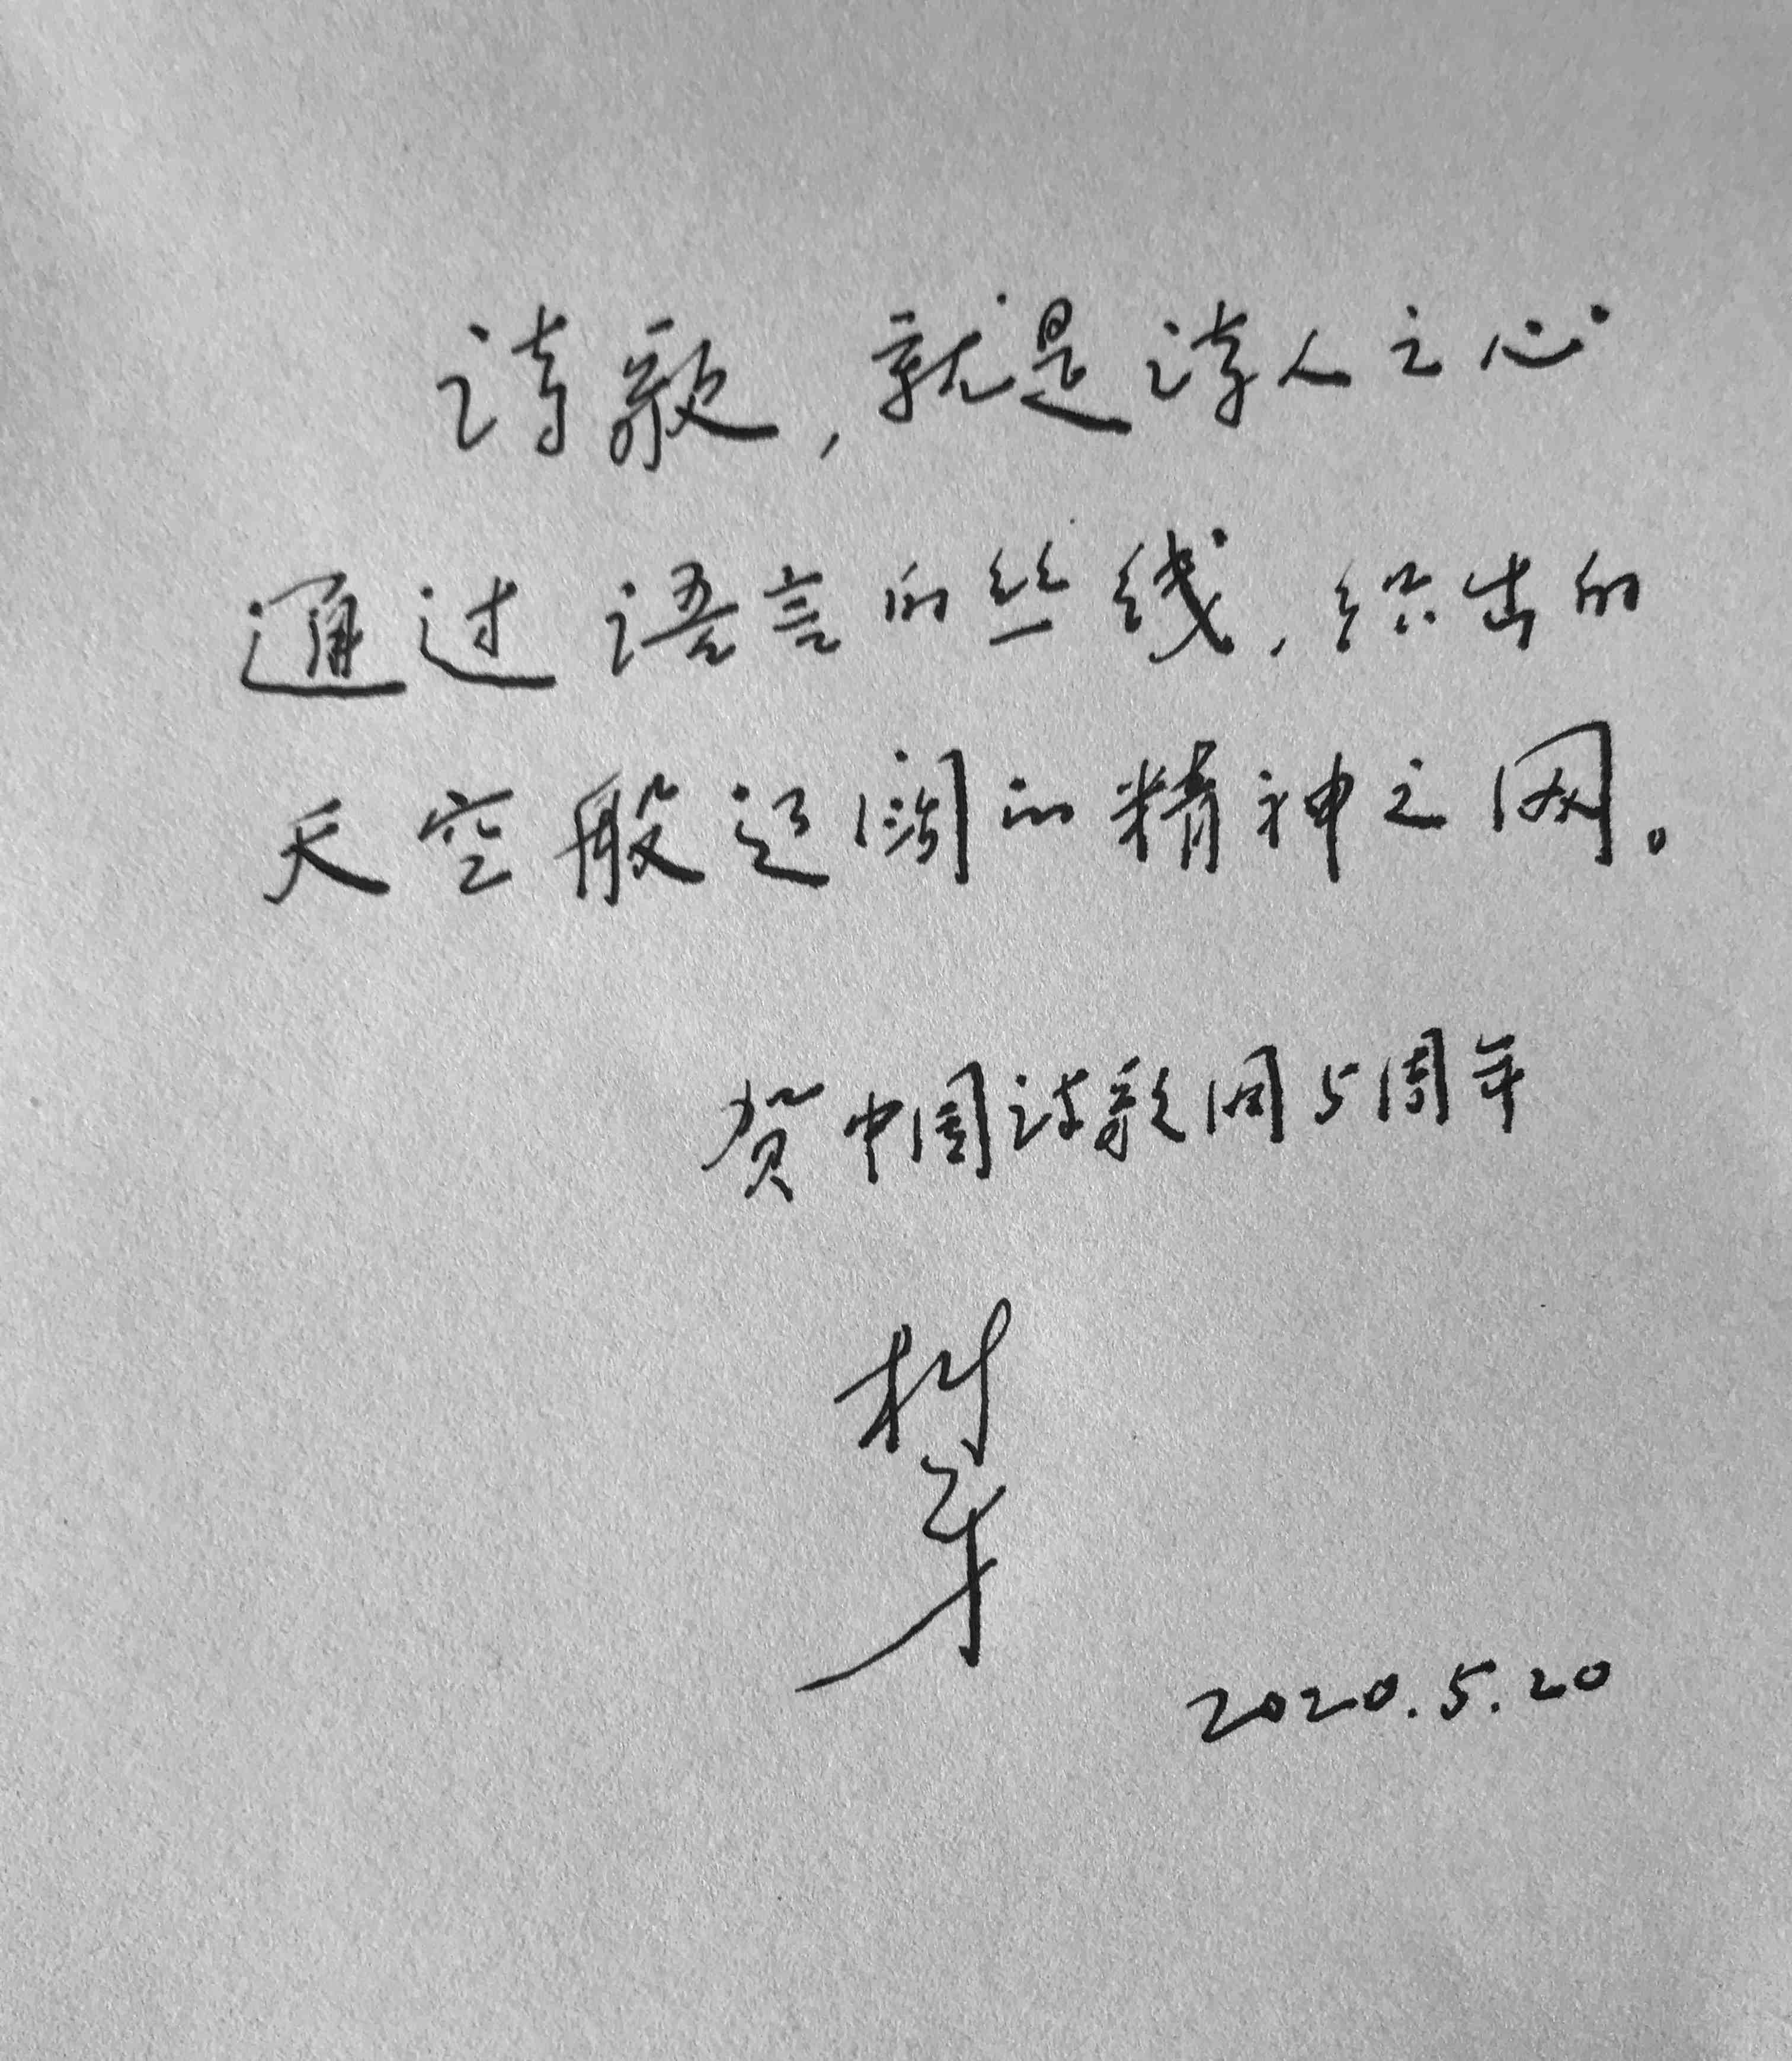 诗歌，就是诗人之心
通过语言的丝线，织出的
天空般辽阔的精神之网。
贺中国诗歌网5周年
树才
2020.5.20